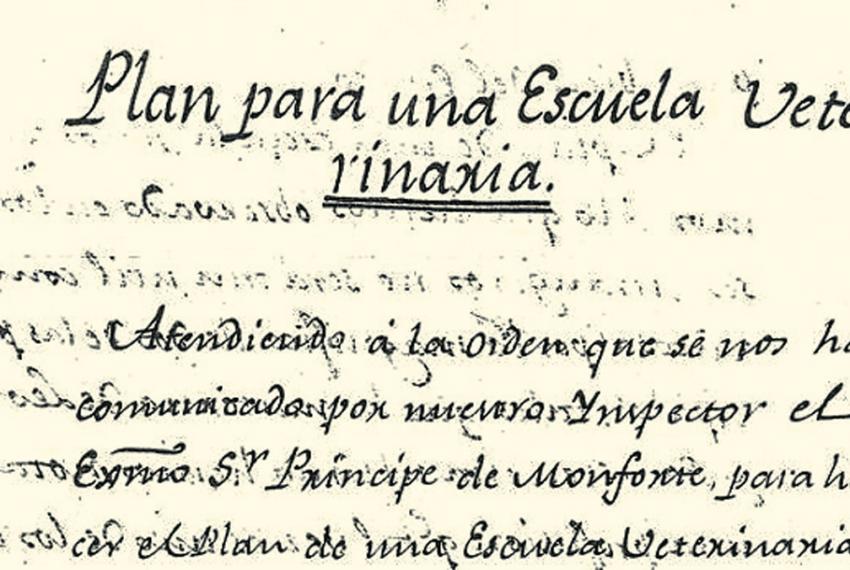 Plan para una Escuela Vete
rinaria.
Atendiendo á la orden que se nos ha
comunicado por nuestro Ynspector el
Exmo Sr Principe de Monforte, para h
cer el Plan de una Escuela Veterinaria